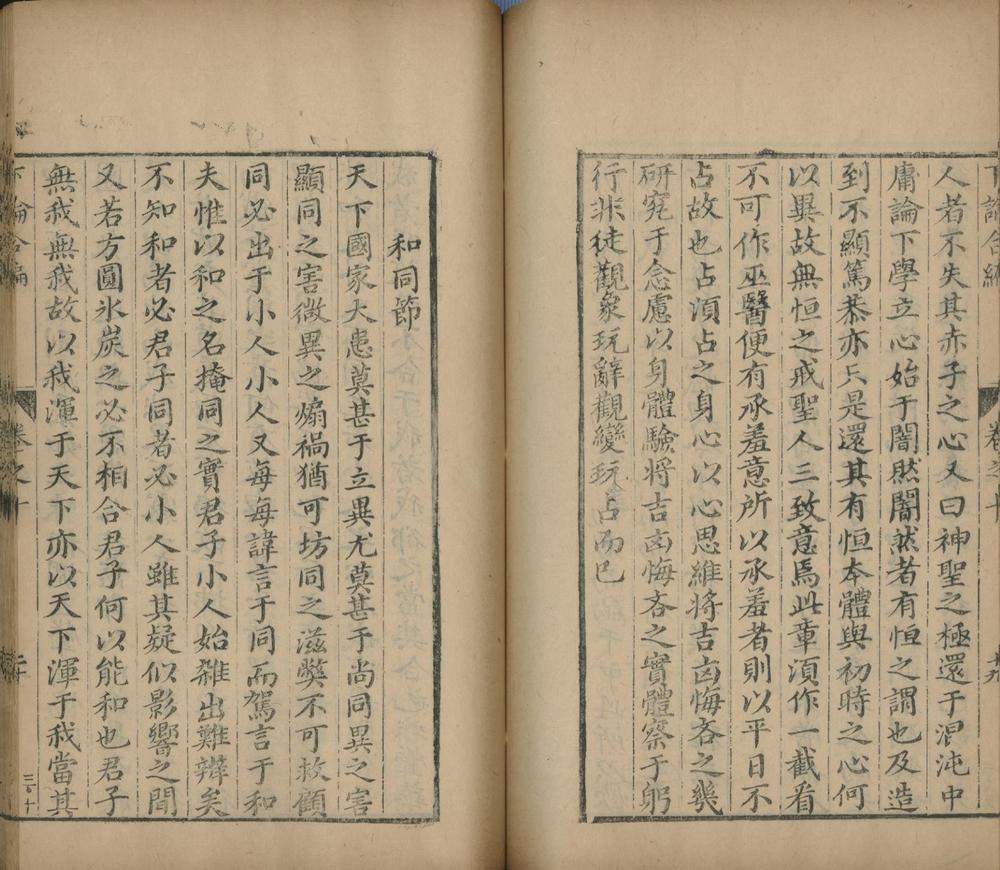 下論合編
卷之十
十九
人者不失其赤子之心又曰神聖之極還于混沌中
庸論下學立心始于闇然闇然者有恒之謂也及造
到不顯篤恭亦只是還其有恒本體與初時之心何
以異故無恒之戒聖人三致意焉此章須作一截看
不可作巫醫便有承羞意所以承羞者則以平日不
占故也占須占之身心以心思維將吉凶悔吝之幾
研究于念慮以身體驗將吉凶悔吝之實體察于躬
行非徒觀象玩辭觀變玩占而已
和同節
天下國家大患莫甚于立異尤莫甚于尚同異之害
顯同之害微異之煽禍猶可坊同之滋弊不可救顧
同必出于小人小人又每每諱言于同而駕言于和
夫惟以和之名掩同之實君子小人始雜出難辨矣
不知和者必君子同者必小人雖其疑似影響之間
又若方圓氷炭之必不相合君子何以能和也君子
無我無我故以我渾于天下亦以天下渾于我當其
下論合編
卷之十
二十
三百十